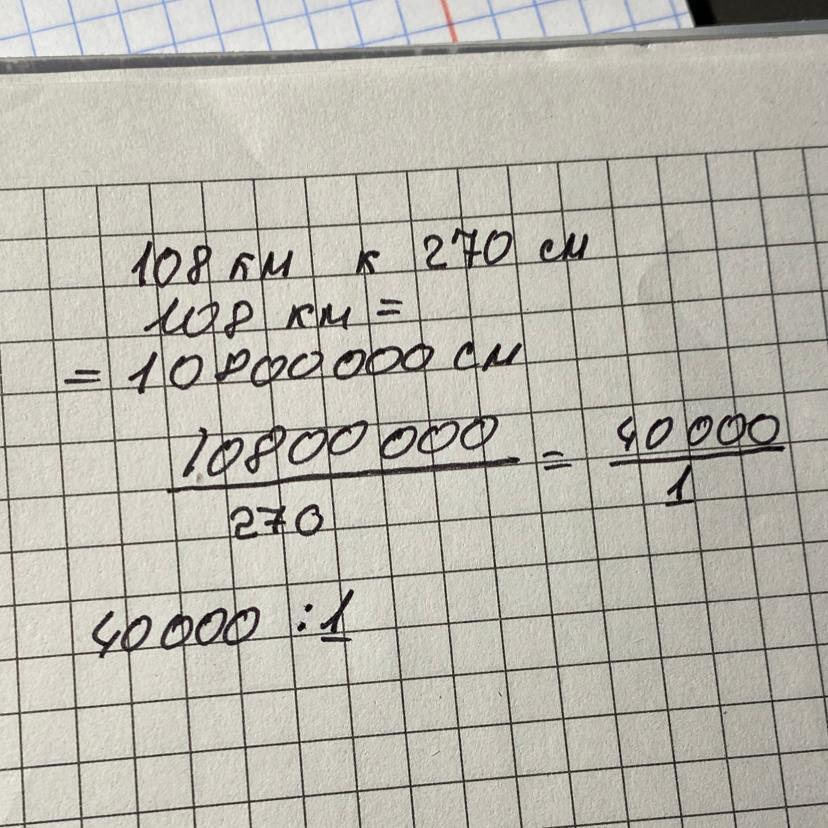 108 км к 270 см
108 км =
= 10800000 см
10800 000 / 270 = 40000 / 1
40000 : 1